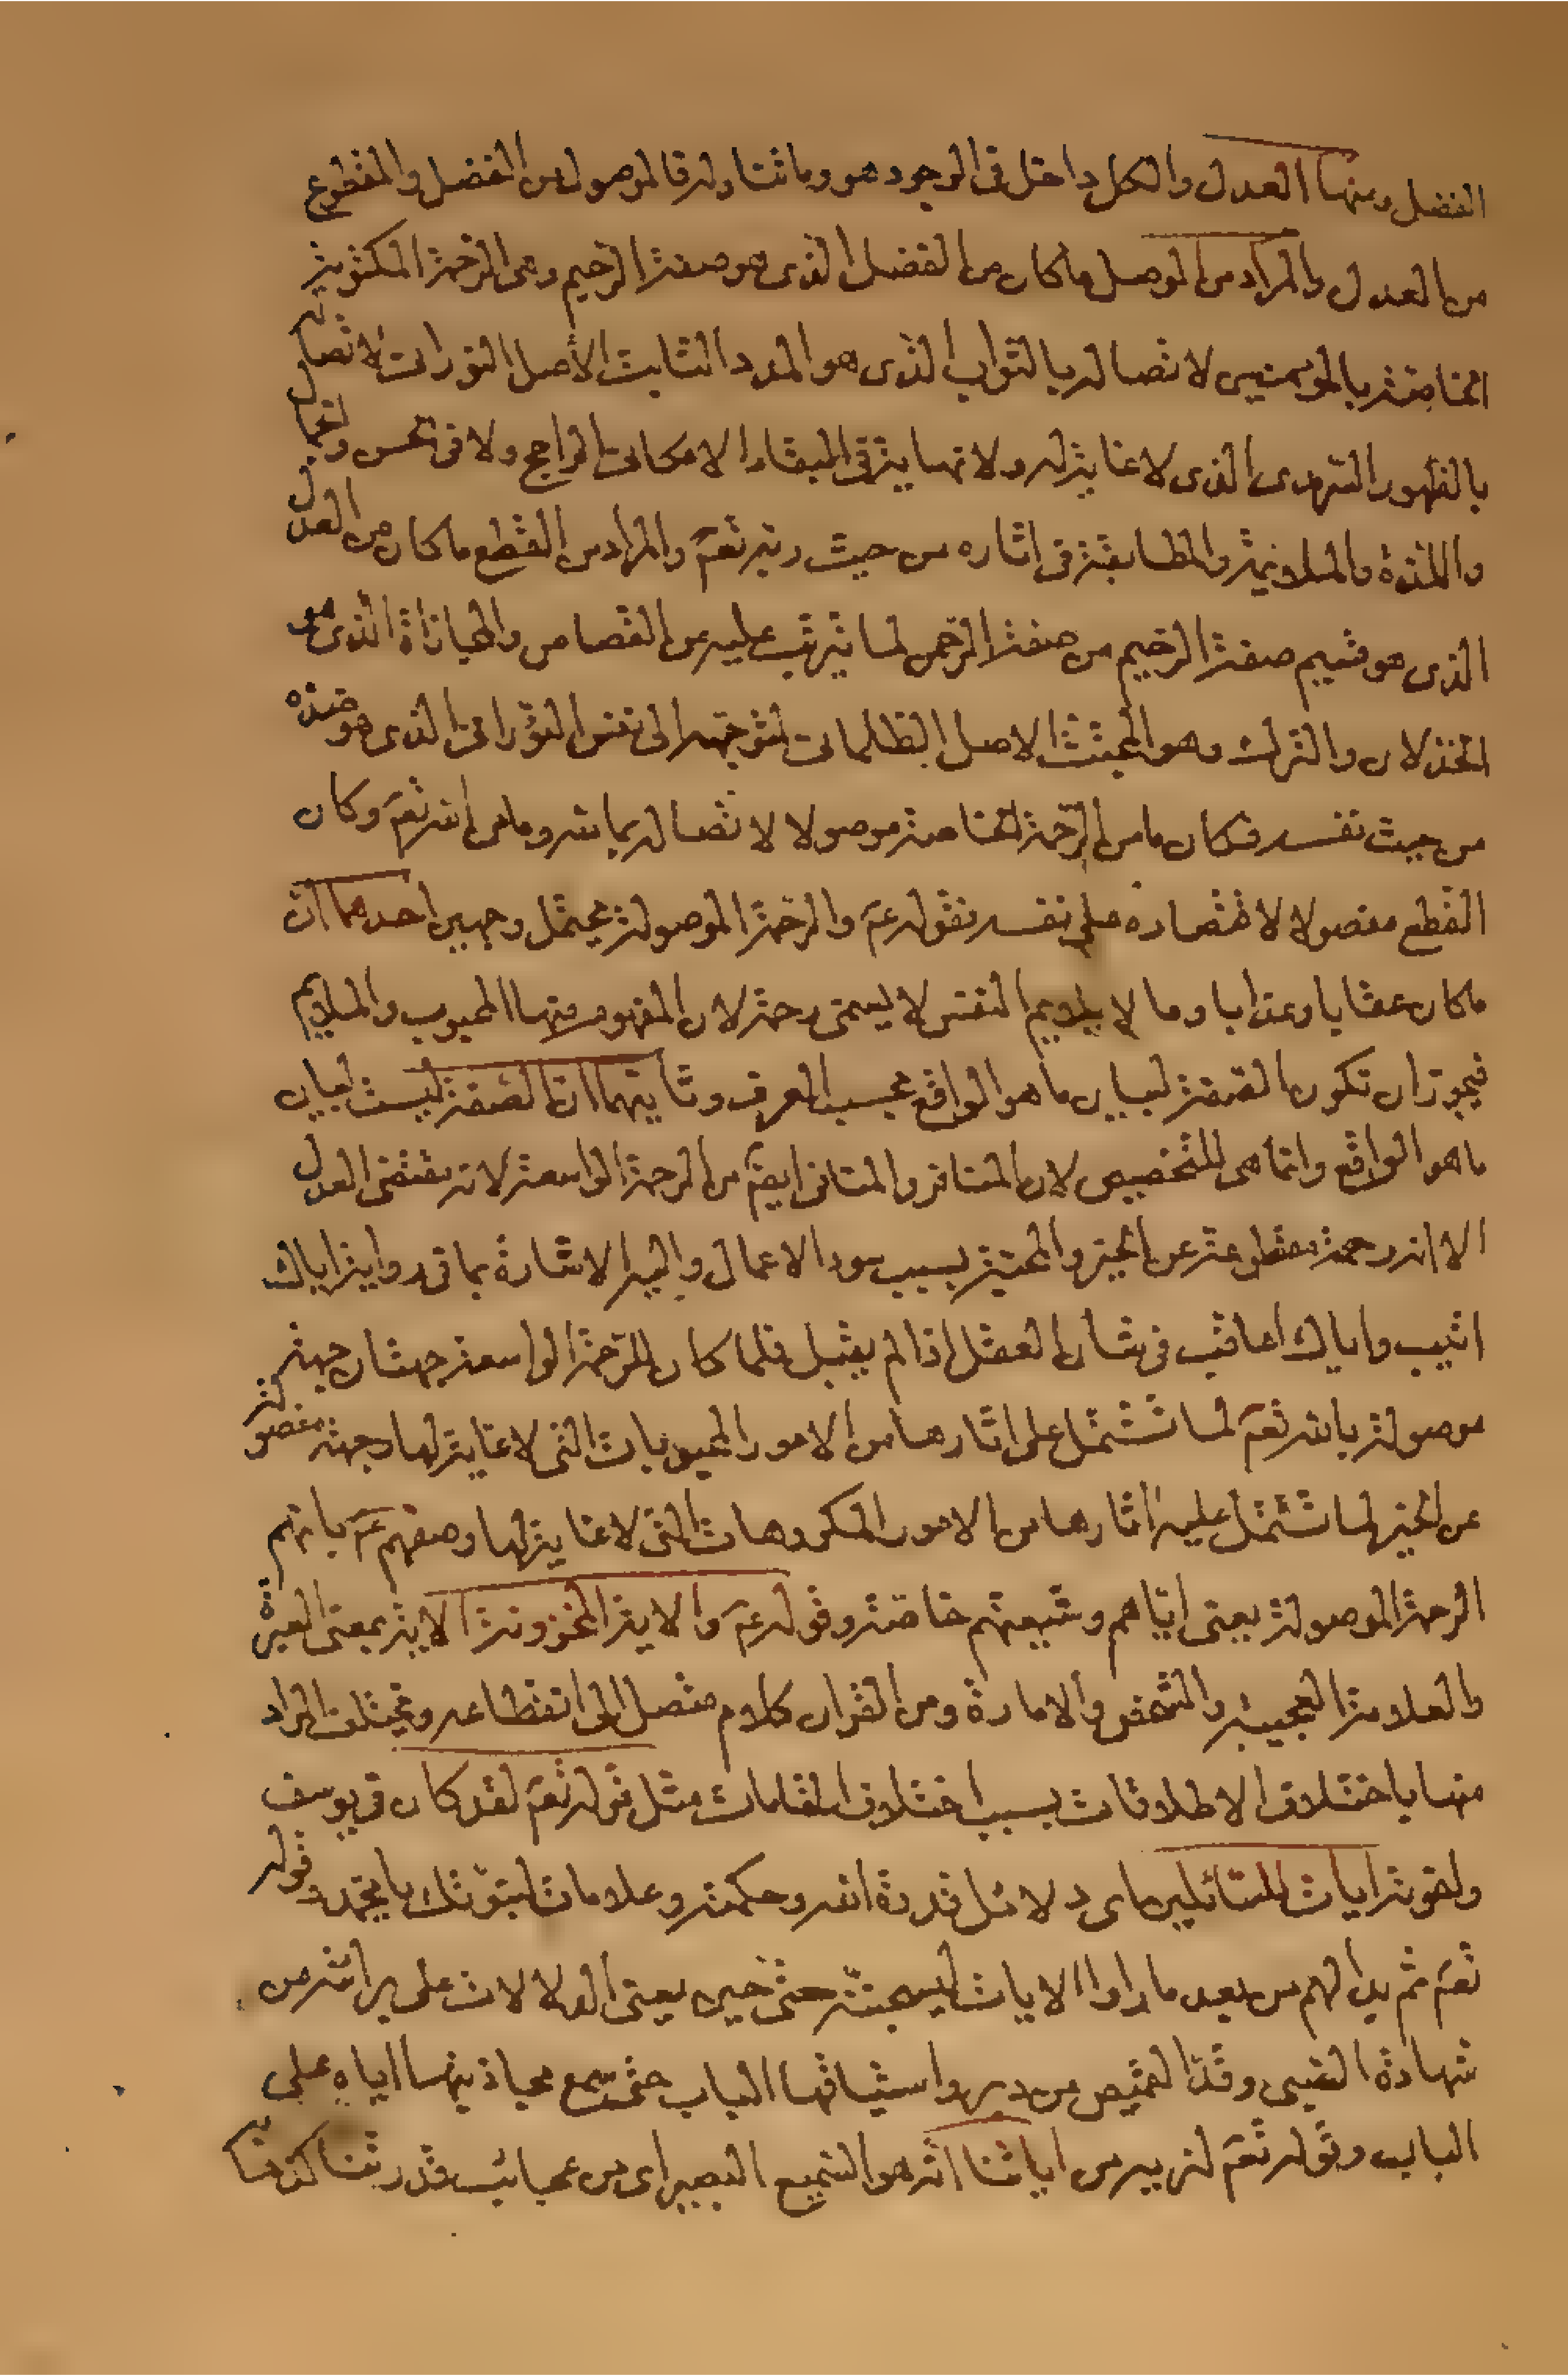 الفضل ومنها العدل والكل داخل فى الوجود هو وما تناوله فالموصول من الفضل والمقطوع
من العدل والمراد من الموصل ما كان من الفضل الذى هو صفة الرحيم وهى الرحمة المكتوبة
الخاصة بالمؤمنين لاتصاله بالثواب الذى هو المدد الثابت الأصل النورانى لاتصاله
بالظهور السرمدى الذى لا غاية له ولا نهاية فى البقاء الامكانى الراجح ولا فى الحسن والجمال
واللذوة والملايمة والمطابقة فى اثاره من حيث ربه تعم والمراد من القطع ما كان من العدل
الذى هو قسيم صفة الرحيم من صفة الرحمن لما يترتب عليه من القصاص والمجازاة الذى هو
الخذلان والترك وهو المجتث الاصل الظلمانى لتوجهه الى نفس النورانى الذى هو ضده
من حيث نفسه فكان ما من الرحمة الخاصة موصولا لاتصاله بالله وما من الله تعم وكان
القطع مفصولا لاقتصاره على نفسه فقوله عم والرحمة الموصولة يحتمل وجهين احدهما ان
ما كان عقابا وعذابا وما لا يلايم النفس لا يسمى رحمة لان المفهوم منها المحبوب والملايم
فيجوز ان تكون الصفة لبيان ما هو الواقع بحسب العرف وثانيهما ان الصفة ليست لبيان
ما هو الواقع وانما هى للتخصيص لان المنافر والمنافى ايضم من الرحمة الواسعة لانه مقتضى العدل
الا انه رحمة مقطوعة عن الخير والمحبة بسبب سوء الاعمال واليه الاشارة بما قد روايه اياك
اثيب واياك اعاقب فى شان العقل اذا لم يقبل فلما كان للرحمة الواسعة جهتان جهة
موصولة بالله تعم لما تشتمل على اثارها من الامور المحبوبات التى لا غاية لها وجهة مفصولة
عن الخير لما تشتمل عليه اثارها من الامور المكروهات التى لا غاية لها وصفهم عم بانهم
الرحمة الموصولة يعنى اياهم وشيعتهم خاصة وقوله عم والاية المخزونة الاية بمعنى العبرة
والعلامة العجيبة والشخص والامارة ومن القران كلام متصل الى انقطاعه ويختلف المراد
منها باختلاف الاطلاقات بسبب اختلاف المقامات مثل قوله تعم لقد كان فى يوسف
واخوته ايات للسائلين اى دلائل قدرة الله وحكمته وعلامات لنبوتك يا محمد وقوله
تعم ثم بدا لهم من بعد ما راوا الايات ليسجننه حتى حين يعنى الدلالات على براءته من
شهادة الصبى وقدّ القميص من دبر واستباقها الباب حتى سمع مجاذبتها اياه على
الباب وقوله تعم لنريه من اياتنا انه هو السميع البصير اى من عجائب قدرتنا كذهابه